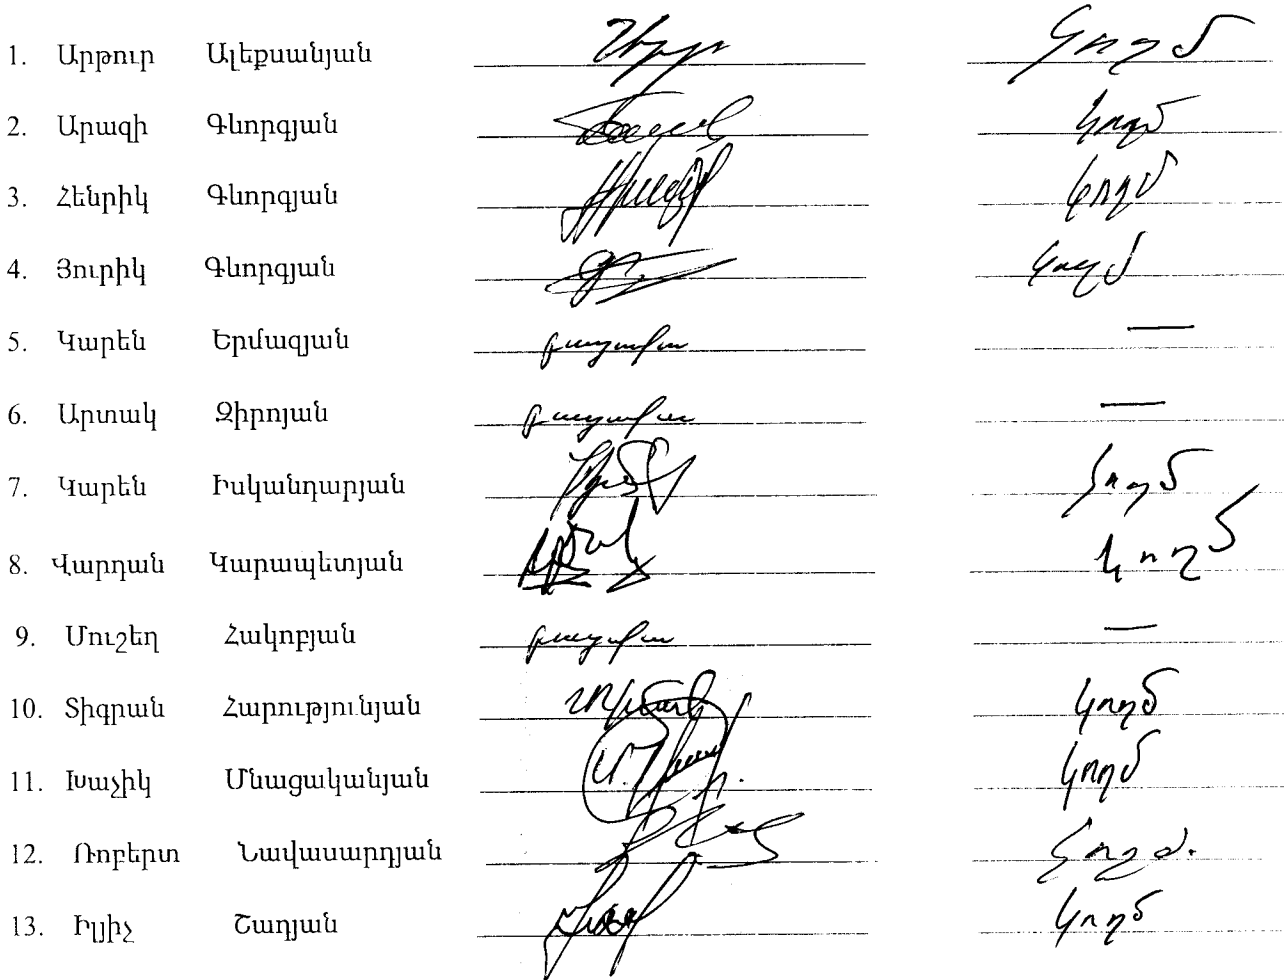 1. Արթուր Ալեքսանյան կողմ
2. Արազի Գևորգյան կողմ
3. Հենրիկ Գևորգյան կողմ
4. Յուրիկ Գևորգյան կողմ
5. Կարեն Երմազյան բացակա —
6. Արտակ Զիրոյան բացակա —
7. Կարեն Իսկանդարյան կողմ
8. Վարդան Կարապետյան կողմ
9. Մուշեղ Հակոբյան բացակա —
10. Տիգրան Հարությունյան կողմ
11. Խաչիկ Մնացականյան կողմ
12. Ռոբերտ Նավասարդյան կողմ.
13. Իլյիչ Շադյան կողմ